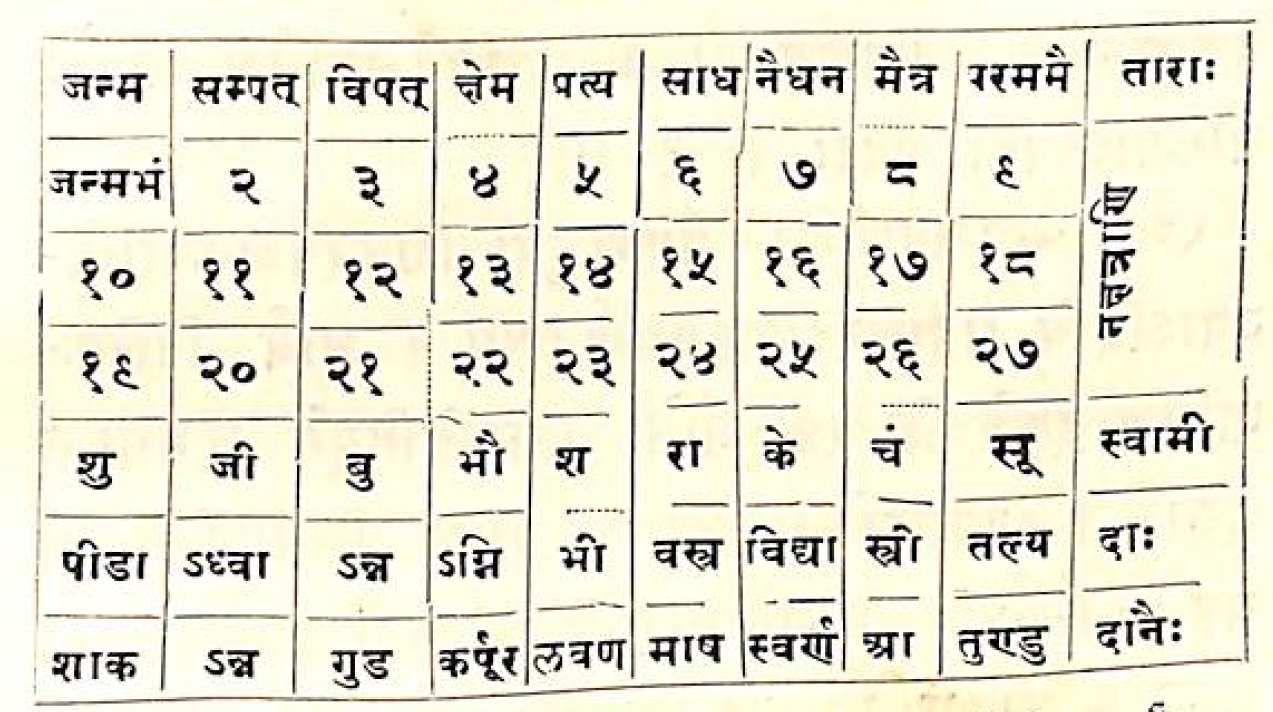 जन्म सम्पत् विपत् क्षेम पत्य साध नैधन मैत्र परममै ताराः
जन्मभं २ ३ ४ ५ ६ ७ ८ ९ नक्षत्राणि
१० ११ १२ १३ १४ १५ १६ १७ १८
१९ २० २१ २२ २३ २४ २५ २६ २७
शु जी बु भौ श रा के चं सू स्वामी
पीडा ऽध्वा ऽन्न ऽग्नि भी वस्त्र विद्या स्त्री तल्य दाः
शाक ऽन्न गुड कर्पूर लवण माष स्वर्ण आ तुण्डु दानैः